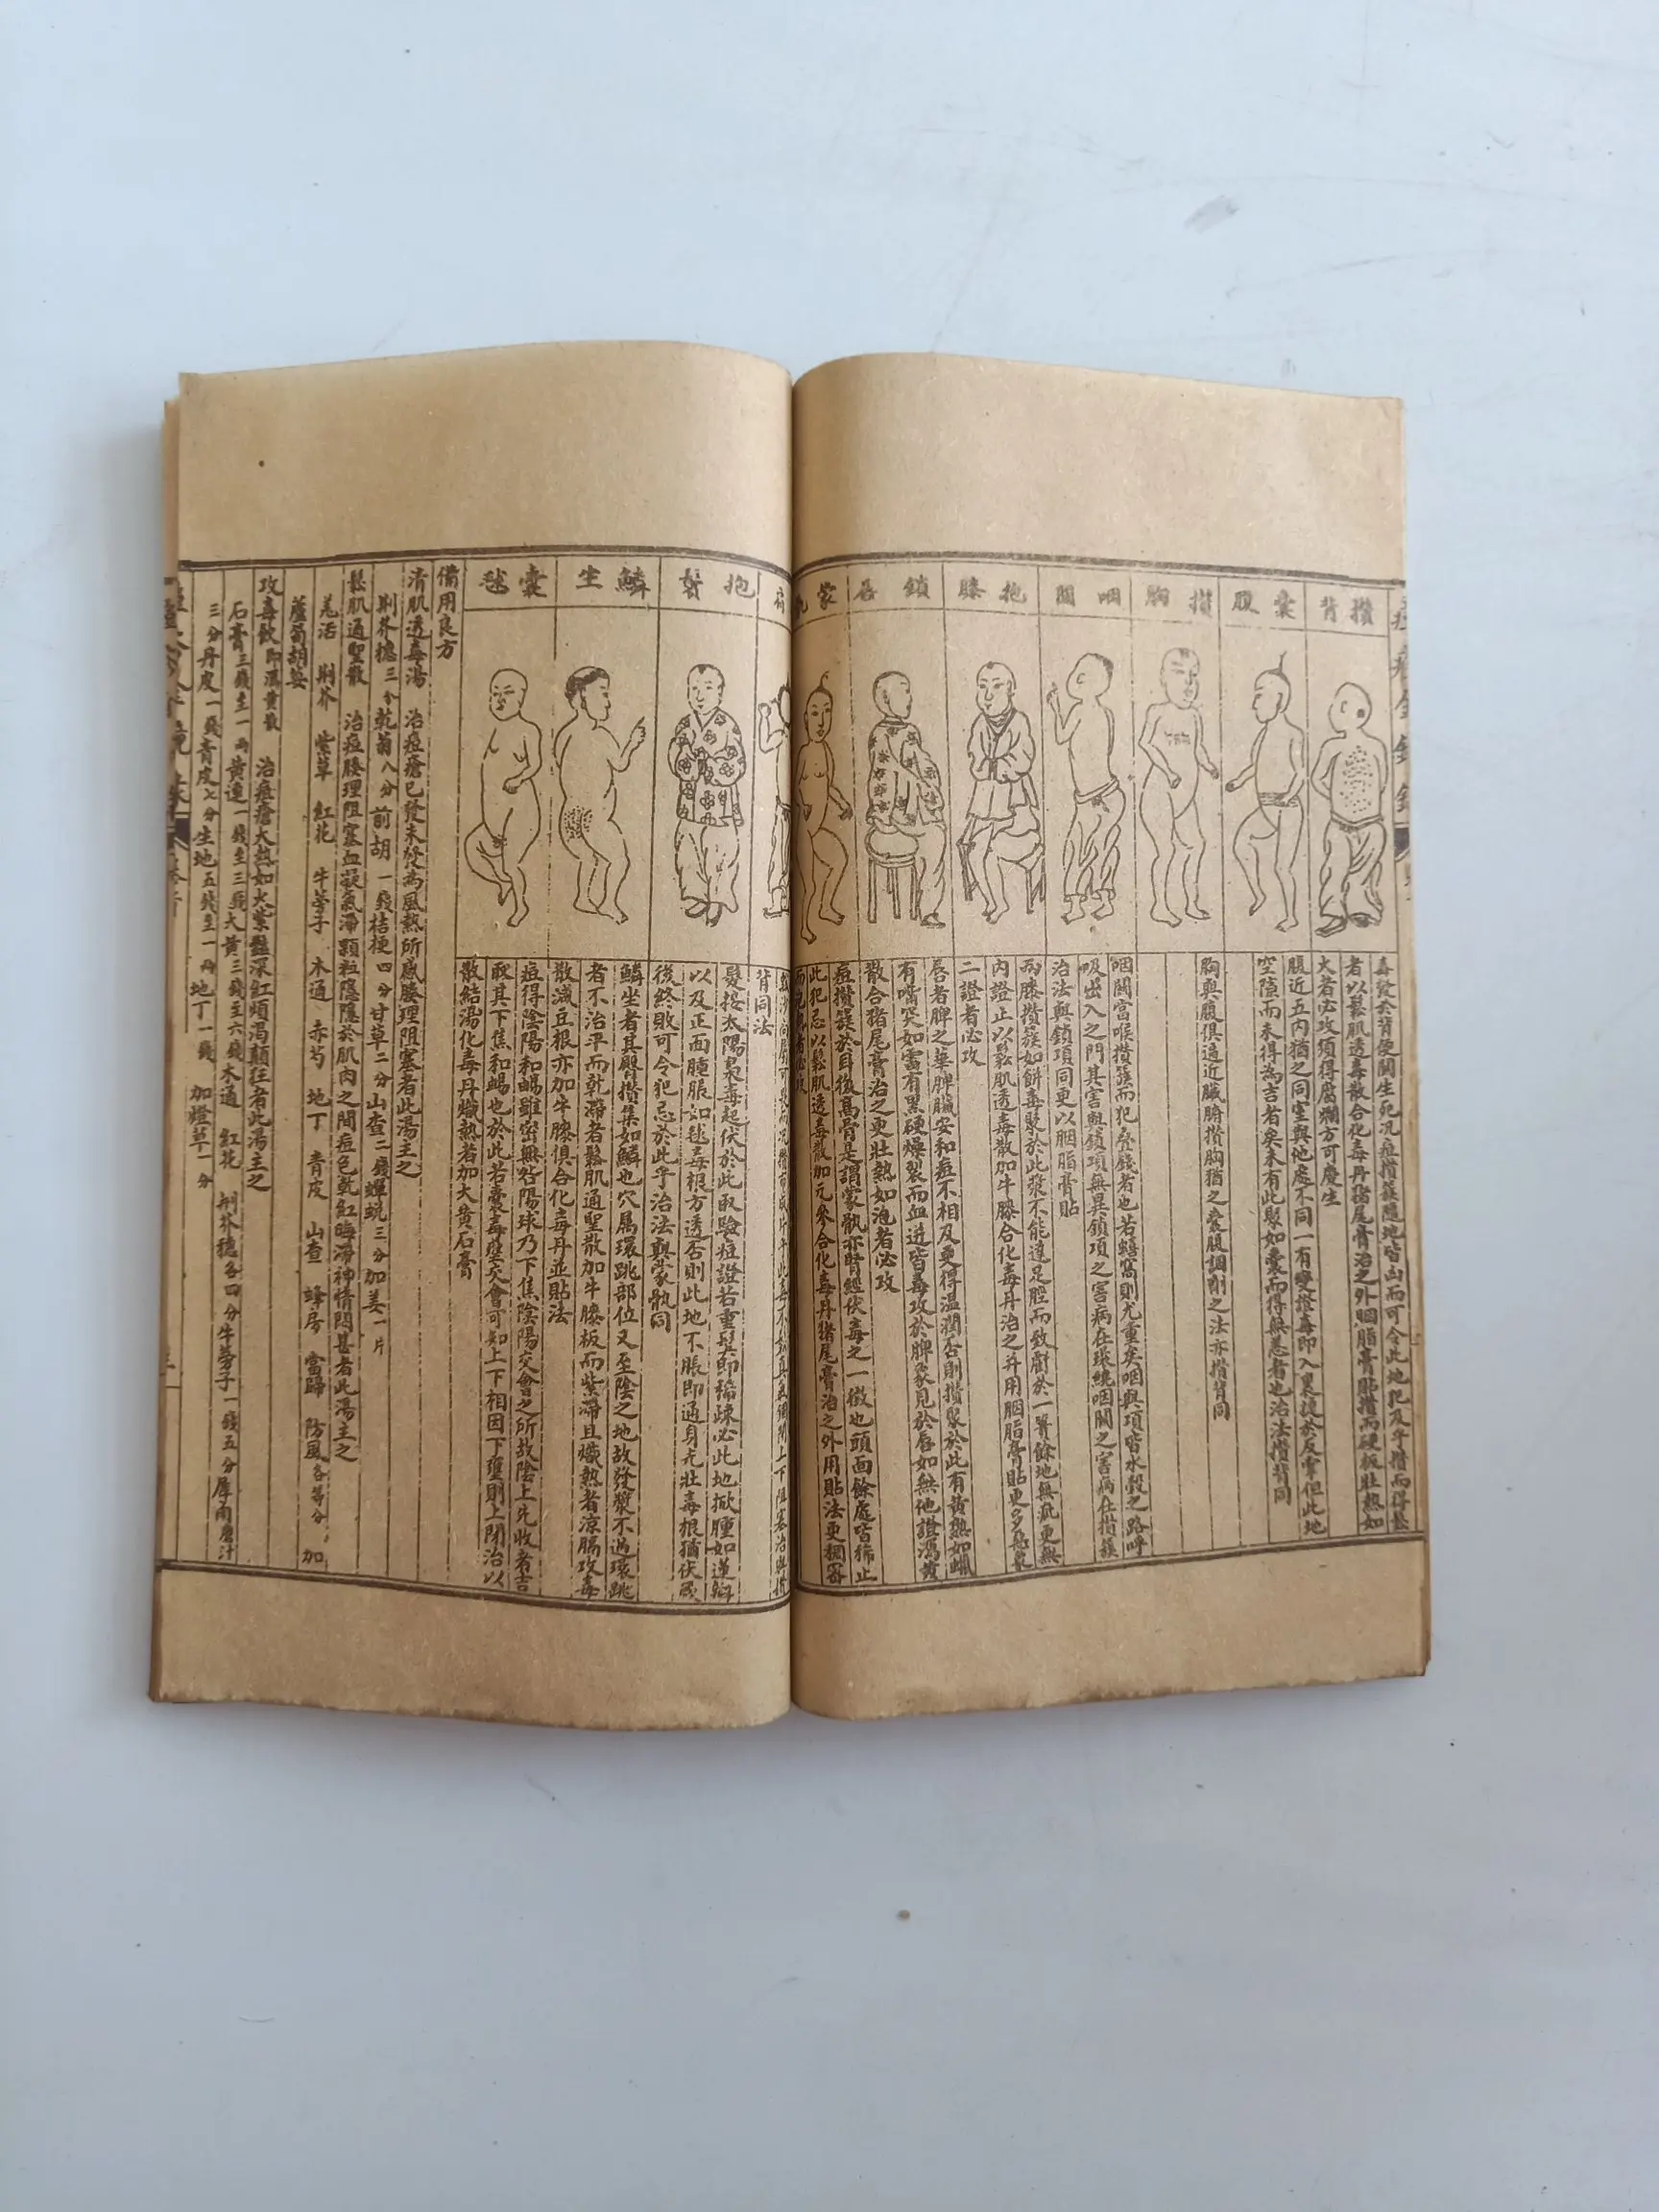 攢背
毒發於背便關生死況痘攢簇隨地皆凶而可令此地犯及乎攢而得鬆
者以鬆肌透毒散合化毒丹猪尾膏治之外胭脂膏貼攢而硬板壯熱如
火者必攻須得腐爛方可慶生
囊腹
腹近五內猶之同室與他處不同一有變證毒即入裏捷於反掌但此地
空隙而未得為吉者矣未有此聚如囊而得無恙者也治法攢背同
攢胸
胸與腹俱逼近臟腑攢胸猶之囊腹調劑之法亦攢背同
咽關
咽關當喉攢簇而犯疊錢者也若蟢窩則尤重矣咽與項皆水穀之路呼
吸出入之門其害與鎖項無異鎖項之害病在環繞咽關之害病在攢簇
治法與鎖項同更以胭脂膏貼
抱膝
兩膝攢簇如餅毒聚於此漿不能達足脛而致斃於一簣餘地無疵更無
內證止以鬆肌透毒散加牛膝合化毒丹治之并用胭脂膏貼更多惡象
二證者必攻
鎖唇
唇者脾之華脾臟安和痘不相及更得溫潤否則攢聚於此有黃熟如蠟
有嘴突如雷有黑硬燥裂而血迸皆毒攻於脾象見於唇如無他證瀉黃
散合猪尾膏治之更壯熱如泡者必攻
蒙骩
痘攢簇於耳後高骨是謂蒙骩亦腎經伏毒之一徵也頭面餘處皆稀止
此犯忌以鬆肌透毒散加元參合化毒丹猪尾膏治之外用貼法更獨窩
背同法
抱鬂
髮接太陽梟毒起伏於此取驗痘證若重鬂即稀疎必此地掀腫如蓮瓣
以及正面腫脹如毬毒根方透否則此地不脹即通身光壯毒根猶伏
後終敗可令犯忌於此乎治法與蒙骩同
鱗坐
鱗坐者其臀攢集如鱗也穴屬環跳部位又至陰之地故發漿不過環跳
者不治平而乾滯者鬆肌通聖散加牛膝板而紫滯且熾熱者涼膈攻毒
散減豆根亦加牛膝俱合化毒丹並貼法
囊毬
痘得陰陽和暢雖密無咎陽球乃下焦陰陽交會之所故陰上先收者吉
取其下焦和暢也於此若囊毒壅交會可知上下相因下壅則上閉治以
散結湯化毒丹熾熱者加大黃石膏
備用良方
清肌透毒湯　治痘瘡已發未發為風熱所感腠理阻塞者此湯主之
荆芥穗三分乾葛八分前胡一錢桔梗四分甘草二分山查二錢蟬蛻三分加姜一片
鬆肌通聖散　治痘腠理阻塞血凝氣滯顆粒隱隱於肌肉之間痘色乾紅晦滯神情悶甚者此湯主之
羌活　荆芥　紫草　紅花　牛蒡子　木通　赤芍　地丁　青皮　山查　蜂房　當歸　防風各等分　加
蘆筍胡荽
攻毒飲即瀉黃散　治痘瘡大熱如火紫豔深紅煩渴顛狂者此湯主之
石膏三錢至一兩黃連一錢至三錢大黃三錢至六錢木通　紅花　荆芥穗各四分牛蒡子一錢五分犀角磨汁
三分丹皮一錢青皮七分生地五錢至一兩地丁一錢　加燈草一分